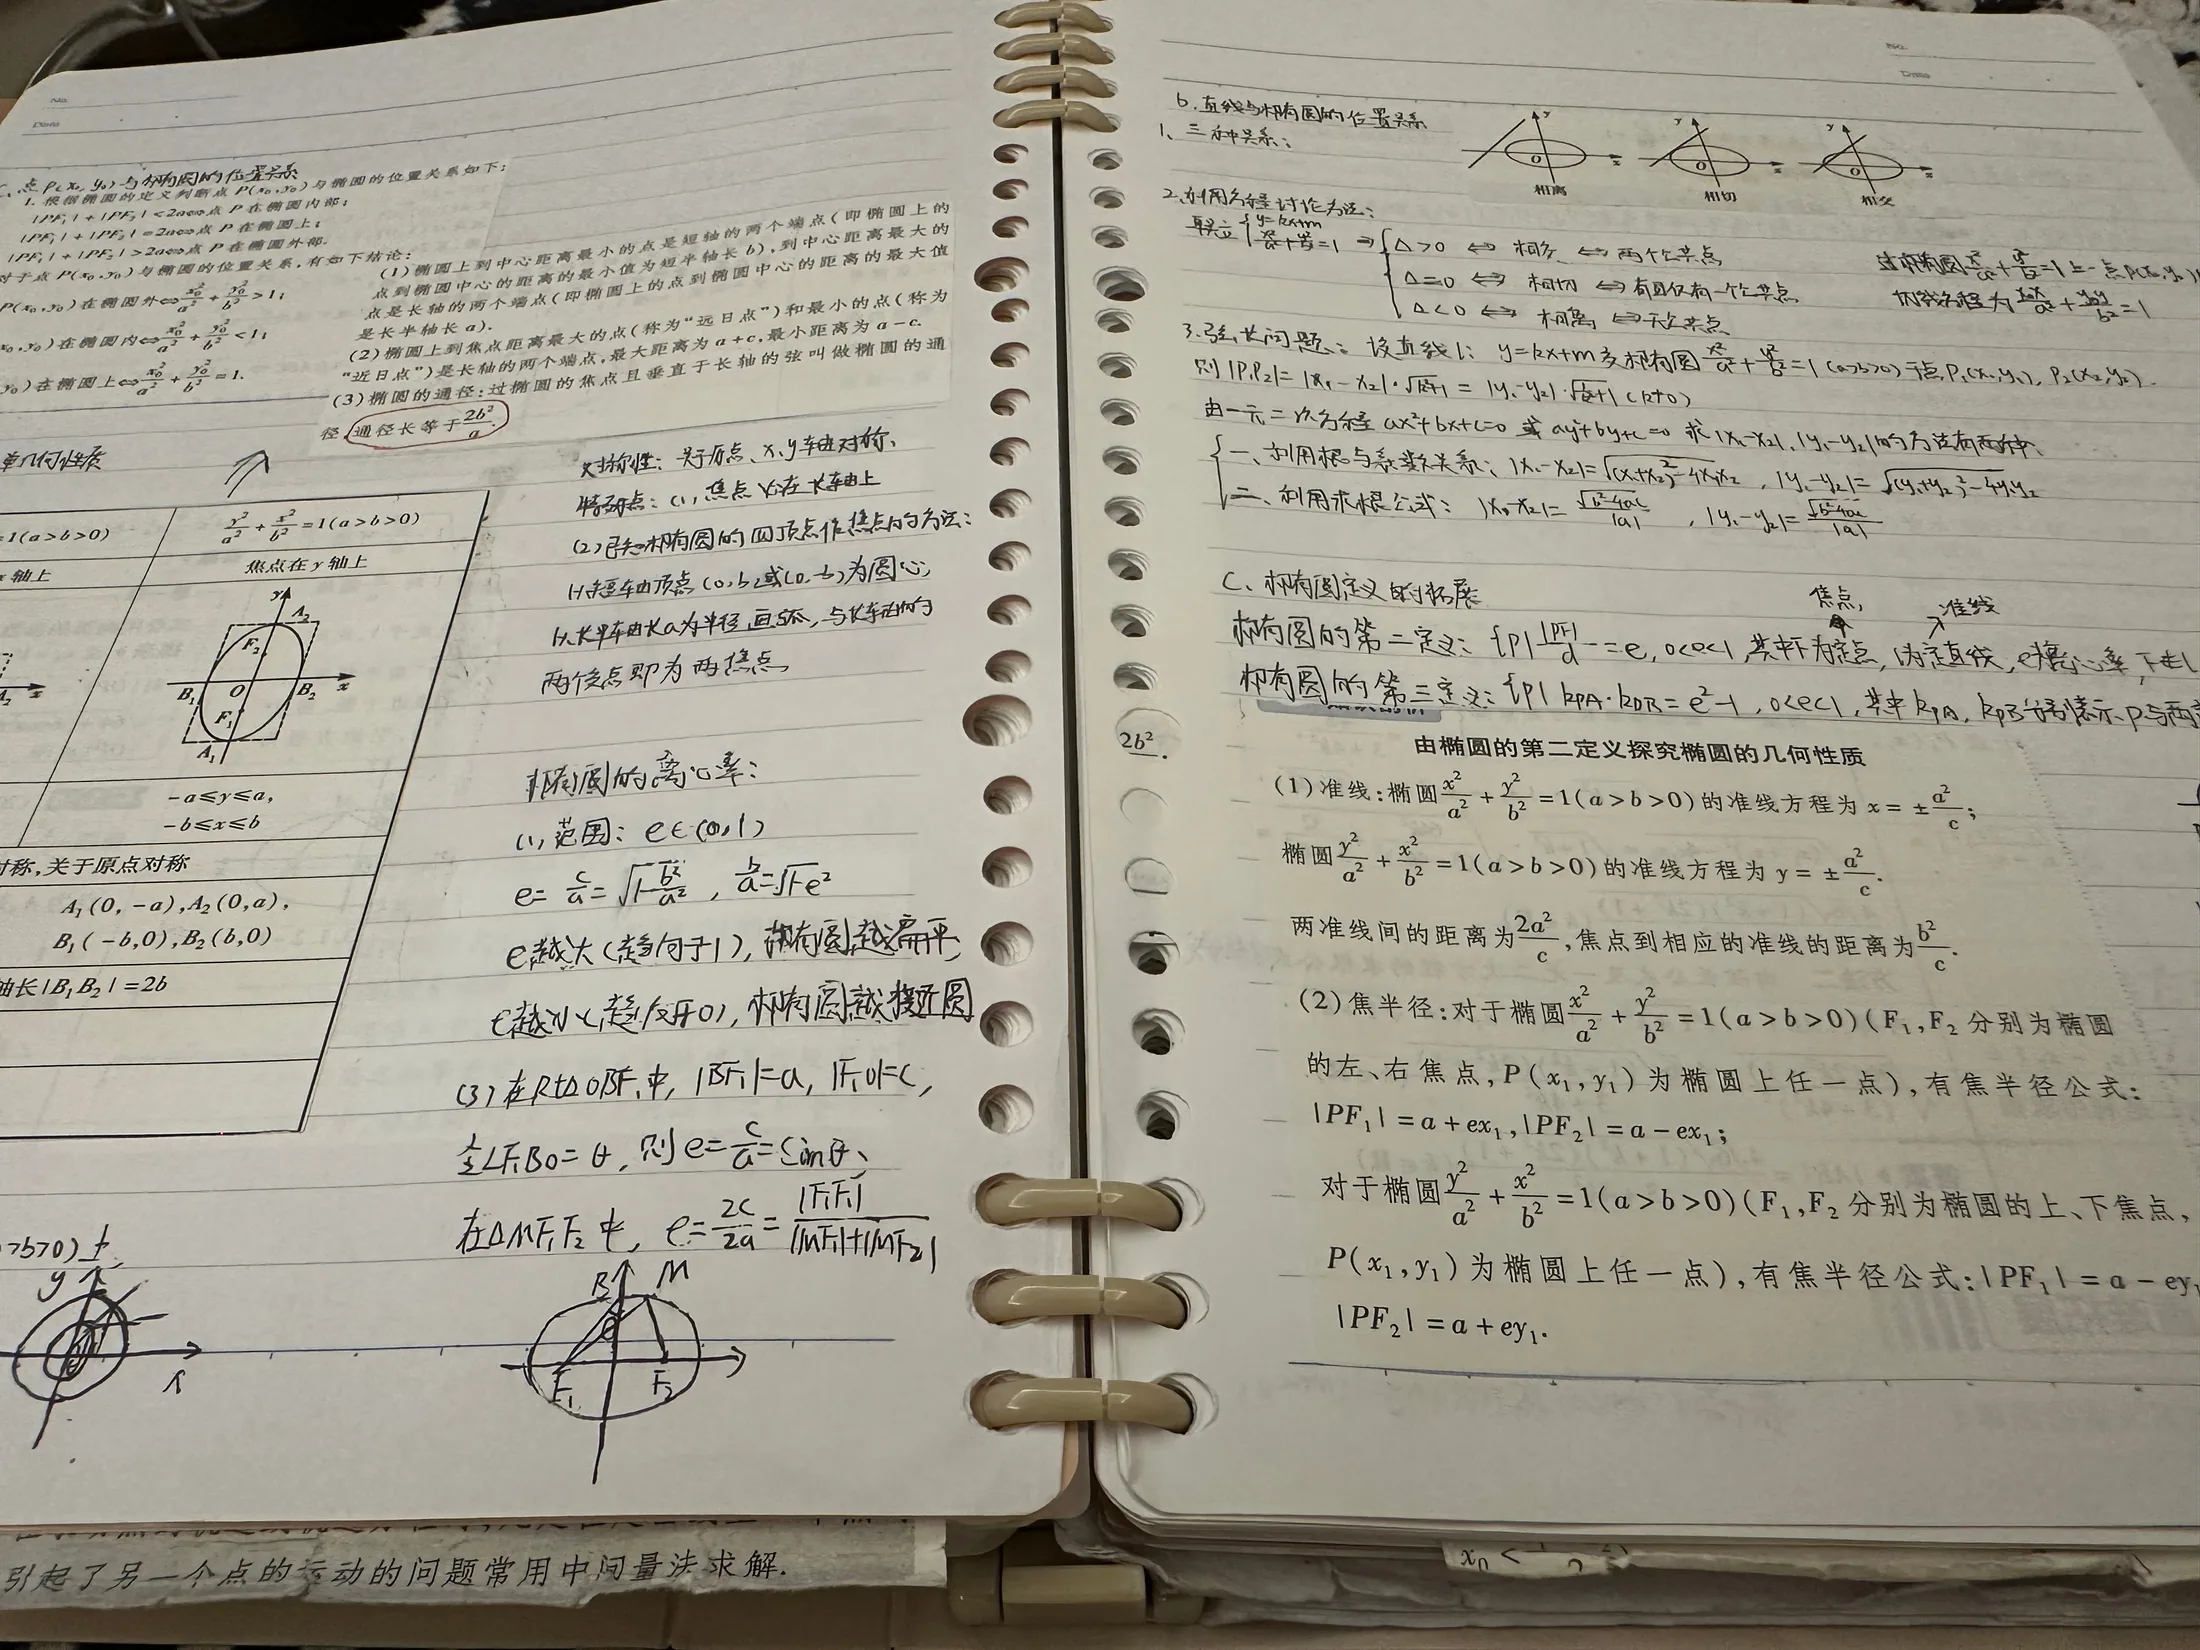 No.
Date
点P(x₀,y₀)与椭圆的位置关系
1. 根据椭圆的定义判断点P(x₀,y₀)与椭圆的位置关系如下：
|PF₁|+|PF₂|<2a⇔点P在椭圆内部；
|PF₁|+|PF₂|=2a⇔点P在椭圆上；
|PF₁|+|PF₂|>2a⇔点P在椭圆外部.
对于点P(x₀,y₀)与椭圆的位置关系,有如下结论：
P(x₀,y₀)在椭圆外⇔x₀²/a²+y₀²/b²>1；
x₀,y₀)在椭圆内⇔x₀²/a²+y₀²/b²<1；
y₀)在椭圆上⇔x₀²/a²+y₀²/b²=1.
(1)椭圆上到中心距离最小的点是短轴的两个端点(即椭圆上的
点到椭圆中心的距离的最小值为短半轴长b),到中心距离最大的
点是长轴的两个端点(即椭圆上的点到椭圆中心的距离的最大值
是长半轴长a).
(2)椭圆上到焦点距离最大的点(称为“远日点”)和最小的点(称为
“近日点”)是长轴的两个端点,最大距离为a+c,最小距离为a-c.
(3)椭圆的通径:过椭圆的焦点且垂直于长轴的弦叫做椭圆的通
径,通径长等于2b²/a.
单几何性质
=1(a>b>0)
y²/a²+x²/b²=1(a>b>0)
轴上
焦点在y轴上
y
A₂
F₂
B₁
O
B₂
x
F₁
A₁
A₂
x
-a≤y≤a,
-b≤x≤b
对称,关于原点对称
A₁(0,-a),A₂(0,a),
B₁(-b,0),B₂(b,0)
轴长|B₁B₂|=2b
对称性：关于原点、x、y轴对称、
特殊点：(1)、焦点必在长轴上
(2)已知椭圆的四顶点作焦点的方法：
以短轴顶点(0,b)或(0,-b)为圆心,
以长半轴长a为半径画弧,与长轴的
两交点即为两焦点
椭圆的离心率：
(1)、范围：e∈(0,1)
e=c/a=√1-b²/a²,b/a=√1-e²
e越大(趋向于1),椭圆越扁平,
e越小(趋向于0),椭圆越接近圆
(3)在Rt△OBF₁中,|BF₁|=a,|F₁O|=c,
全∠F₁BO=θ,则e=c/a=sinθ、
在△MF₁F₂中,e=2c/2a=|F₁F₂|/|MF₁|+|MF₂|
>b>0)上
y
x
B
M
F₁
F₂
引起了另一个点的运动的问题常用中间量法求解.
No.
Date
b.直线与椭圆的位置关系
1、三种关系：
y
O
x
相离
y
O
x
相切
y
O
x
相交
2、利用方程讨论方法：
联立{y=kx+m
x²/a²+y²/b²=1 ⇒{△>0⇔相交⇔两个公共点
△=0⇔相切⇔有且仅有一个公共点
△<0⇔相离⇔无公共点
过椭圆x²/a²+y²/b²=1上一点P(x₀,y₀)
切线方程为x₀x/a²+y₀y/b²=1
3.弦长问题：设直线l：y=kx+m交椭圆x²/a²+y²/b²=1(a>b>0)于点P₁(x₁,y₁),P₂(x₂,y₂).
则|P₁P₂|=|x₁-x₂|·√k²+1=|y₁-y₂|·√1/k²+1(k≠0)
由一元二次方程ax²+bx+c=0或ay²+by+c=0求|x₁-x₂|,|y₁-y₂|的方法有两种：
一、利用根与系数关系：|x₁-x₂|=√(x₁+x₂)²-4x₁x₂,|y₁-y₂|=√(y₁+y₂)²-4y₁y₂
二、利用求根公式：|x₁-x₂|=√b²-4ac/|a|,|y₁-y₂|=√b²-4ac/|a|
C、椭圆定义的拓展
焦点
准线
椭圆的第二定义：{P||PF|/d=e,0<e<1,其中F为定点,l为定直线,e为离心率,F∉l
椭圆的第三定义：{P|kPA·kPB=e²-1,0<e<1,其中kPA,kPB分别表示P与两
2b²
由椭圆的第二定义探究椭圆的几何性质
(1)准线:椭圆x²/a²+y²/b²=1(a>b>0)的准线方程为x=±a²/c；
椭圆y²/a²+x²/b²=1(a>b>0)的准线方程为y=±a²/c.
两准线间的距离为2a²/c,焦点到相应的准线的距离为b²/c.
(2)焦半径:对于椭圆x²/a²+y²/b²=1(a>b>0)(F₁,F₂分别为椭圆
的左、右焦点,P(x₁,y₁)为椭圆上任一点),有焦半径公式:
|PF₁|=a+ex₁,|PF₂|=a-ex₁；
对于椭圆y²/a²+x²/b²=1(a>b>0)(F₁,F₂分别为椭圆的上、下焦点,
P(x₁,y₁)为椭圆上任一点),有焦半径公式:|PF₁|=a-ey₁
|PF₂|=a+ey₁.